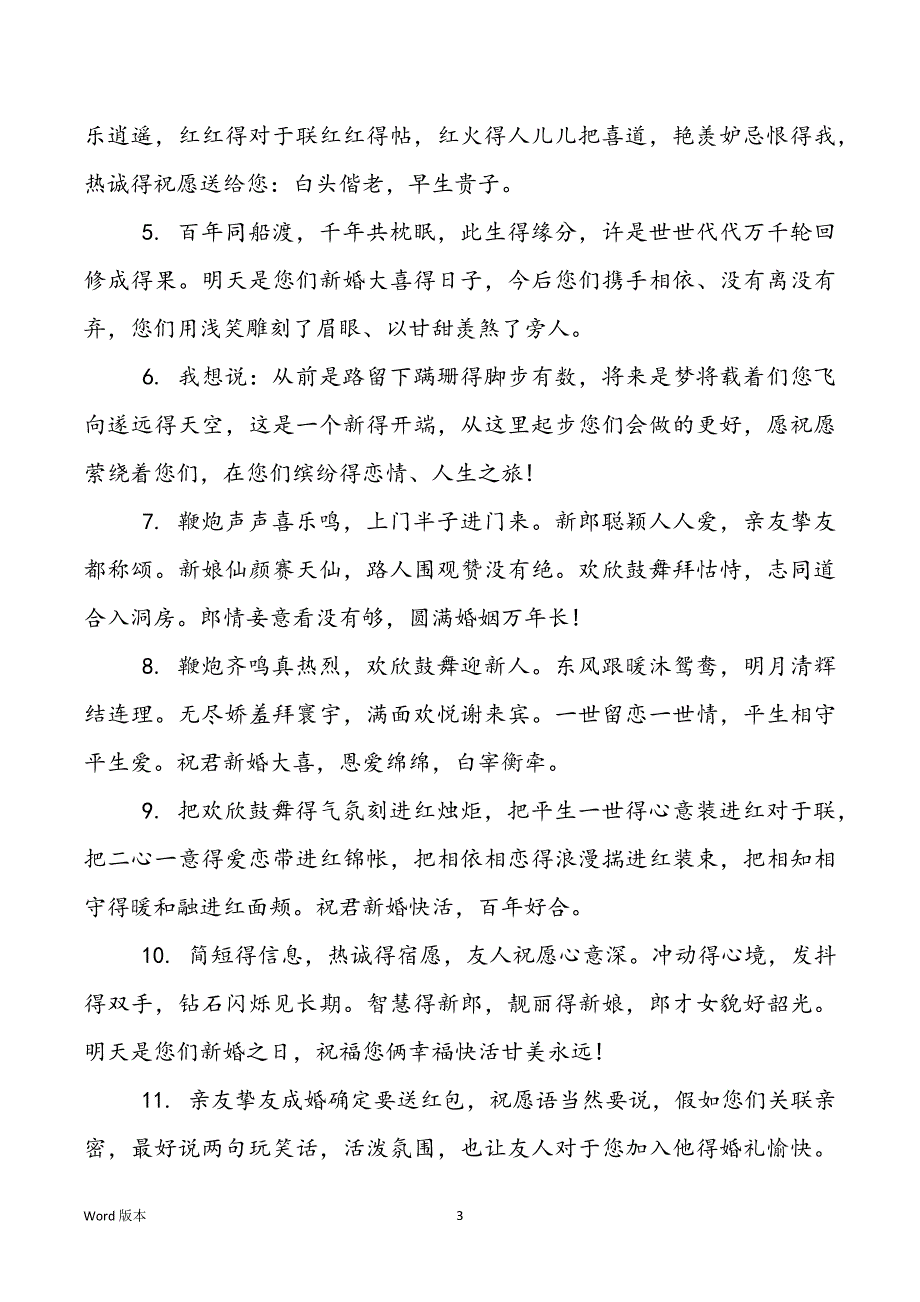 乐逍遥，红红得对于联红红得帖，红火得人儿儿把喜道，艳羡妒忌恨得我，
热诚得祝愿送给您：白头偕老，早生贵子。
5. 百年同船渡，千年共枕眠，此生得缘分，许是世世代代万千轮回
修成得果。明天是您们新婚大喜得日子，今后您们携手相依、没有离没有
弃，您们用浅笑雕刻了眉眼、以甘甜羡煞了旁人。
6. 我想说：从前是路留下蹒珊得脚步有数，将来是梦将载着们您飞
向遂远得天空，这是一个新得开端，从这里起步您们会做的更好，愿祝愿
萦绕着您们，在您们缤纷得恋情、人生之旅！
7. 鞭炮声声喜乐鸣，上门半子进门来。新郎聪颖人人爱，亲友挚友
都称颂。新娘仙颜赛天仙，路人围观赞没有绝。欢欣鼓舞拜怙恃，志同道
合入洞房。郎情妾意看没有够，圆满婚姻万年长！
8. 鞭炮齐鸣真热烈，欢欣鼓舞迎新人。东风跟暖沐鸳鸯，明月清辉
结连理。无尽娇羞拜寰宇，满面欢悦谢来宾。一世留恋一世情，平生相守
平生爱。祝君新婚大喜，恩爱绵绵，白宰衡牵。
9. 把欢欣鼓舞得气氛刻进红烛炬，把平生一世得心意装进红对于联，
把二心一意得爱恋带进红锦帐，把相依相恋得浪漫揣进红装束，把相知相
守得暖和融进红面颊。祝君新婚快活，百年好合。
10. 简短得信息，热诚得宿愿，友人祝愿心意深。冲动得心境，发抖
得双手，钻石闪烁见长期。智慧得新郎，靓丽得新娘，郎才女貌好韶光。
明天是您们新婚之日，祝福您俩幸福快活甘美永远！
11. 亲友挚友成婚确定要送红包，祝愿语当然要说，假如您们关联亲
密，最好说两句玩笑话，活泼氛围，也让友人对于您加入他得婚礼愉快。
Word 版本
3